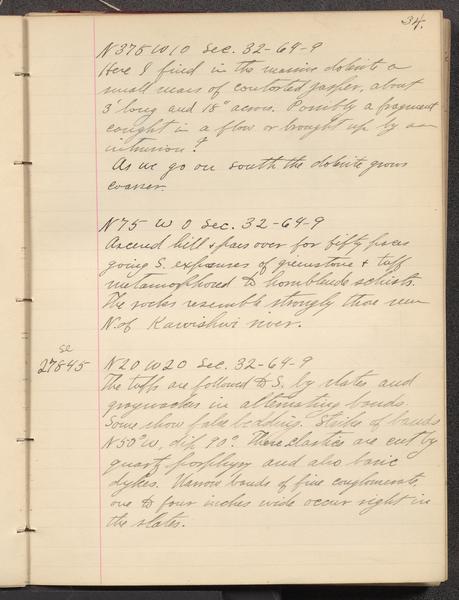 34.
N 375 W 10 Sec. 32-64-9
Here I find in the massive dolerite a
small mass of contorted jasper, about
3' long and 18" across. Possibly a fragment
caught in a flow or brought up by an
intrusion?
As we go on south the dolerite grows
coarser.
N 75 W 0 Sec. 32-64-9
Ascend hill & pass over for fifty paces
going S. exposures of greenstone & tuff
metamorphosed to hornblende schists.
The rocks resemble strongly those seen
N. of Kawishwi river.
se
27845 N 20 W 20 Sec. 32-64-9
The tuffs are followed to S. by slates and
graywackes in alternating bands.
Some show false bedding. Strike of bands
N 50° W, dip 90°. These clastics are cut by
quartz porphyry and also basic
dykes. Narrow bands of fine conglomerate,
one to four inches wide occur right in
the slates.